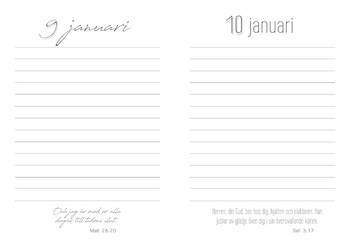 9 januari
Och jag är med er alla
dagar till tidens slut.
Matt 28:20
10 januari
Herren, din Gud, bor hos dig, hjälten och räddaren. Han
jublar av glädje över dig i sin översvallande kärlek.
Sef. 3:17